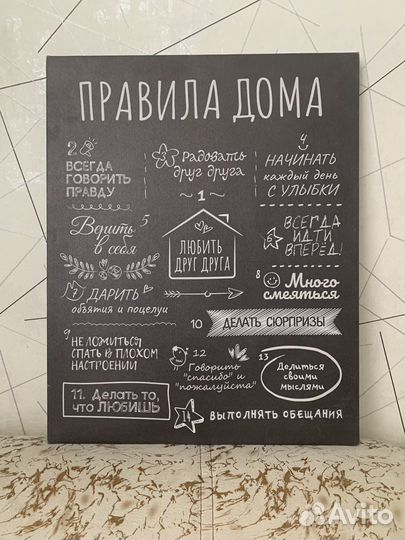 ПРАВИЛА ДОМА
2
ВСЕГДА
ГОВОРИТЬ
ПРАВДУ
3 Радовать
друг друга
4
НАЧИНАТЬ
каждый день
С УЛЫБКИ
1
ЛЮБИТЬ
ДРУГ ДРУГА
5
Верить
в себя
6
ВСЕГДА
ИДТИ
ВПЕРЁД!
7 ДАРИТЬ
объятия и поцелуи
8
Много
смеяться
9
НЕ ЛОЖИТЬСЯ
СПАТЬ В ПЛОХОМ
НАСТРОЕНИИ
10 ДЕЛАТЬ СЮРПРИЗЫ
11. Делать то,
что ЛЮБИШЬ
12
Говорить
"спасибо" и
"пожалуйста"
13
Делиться
своими
мыслями
14 ВЫПОЛНЯТЬ ОБЕЩАНИЯ
Avito